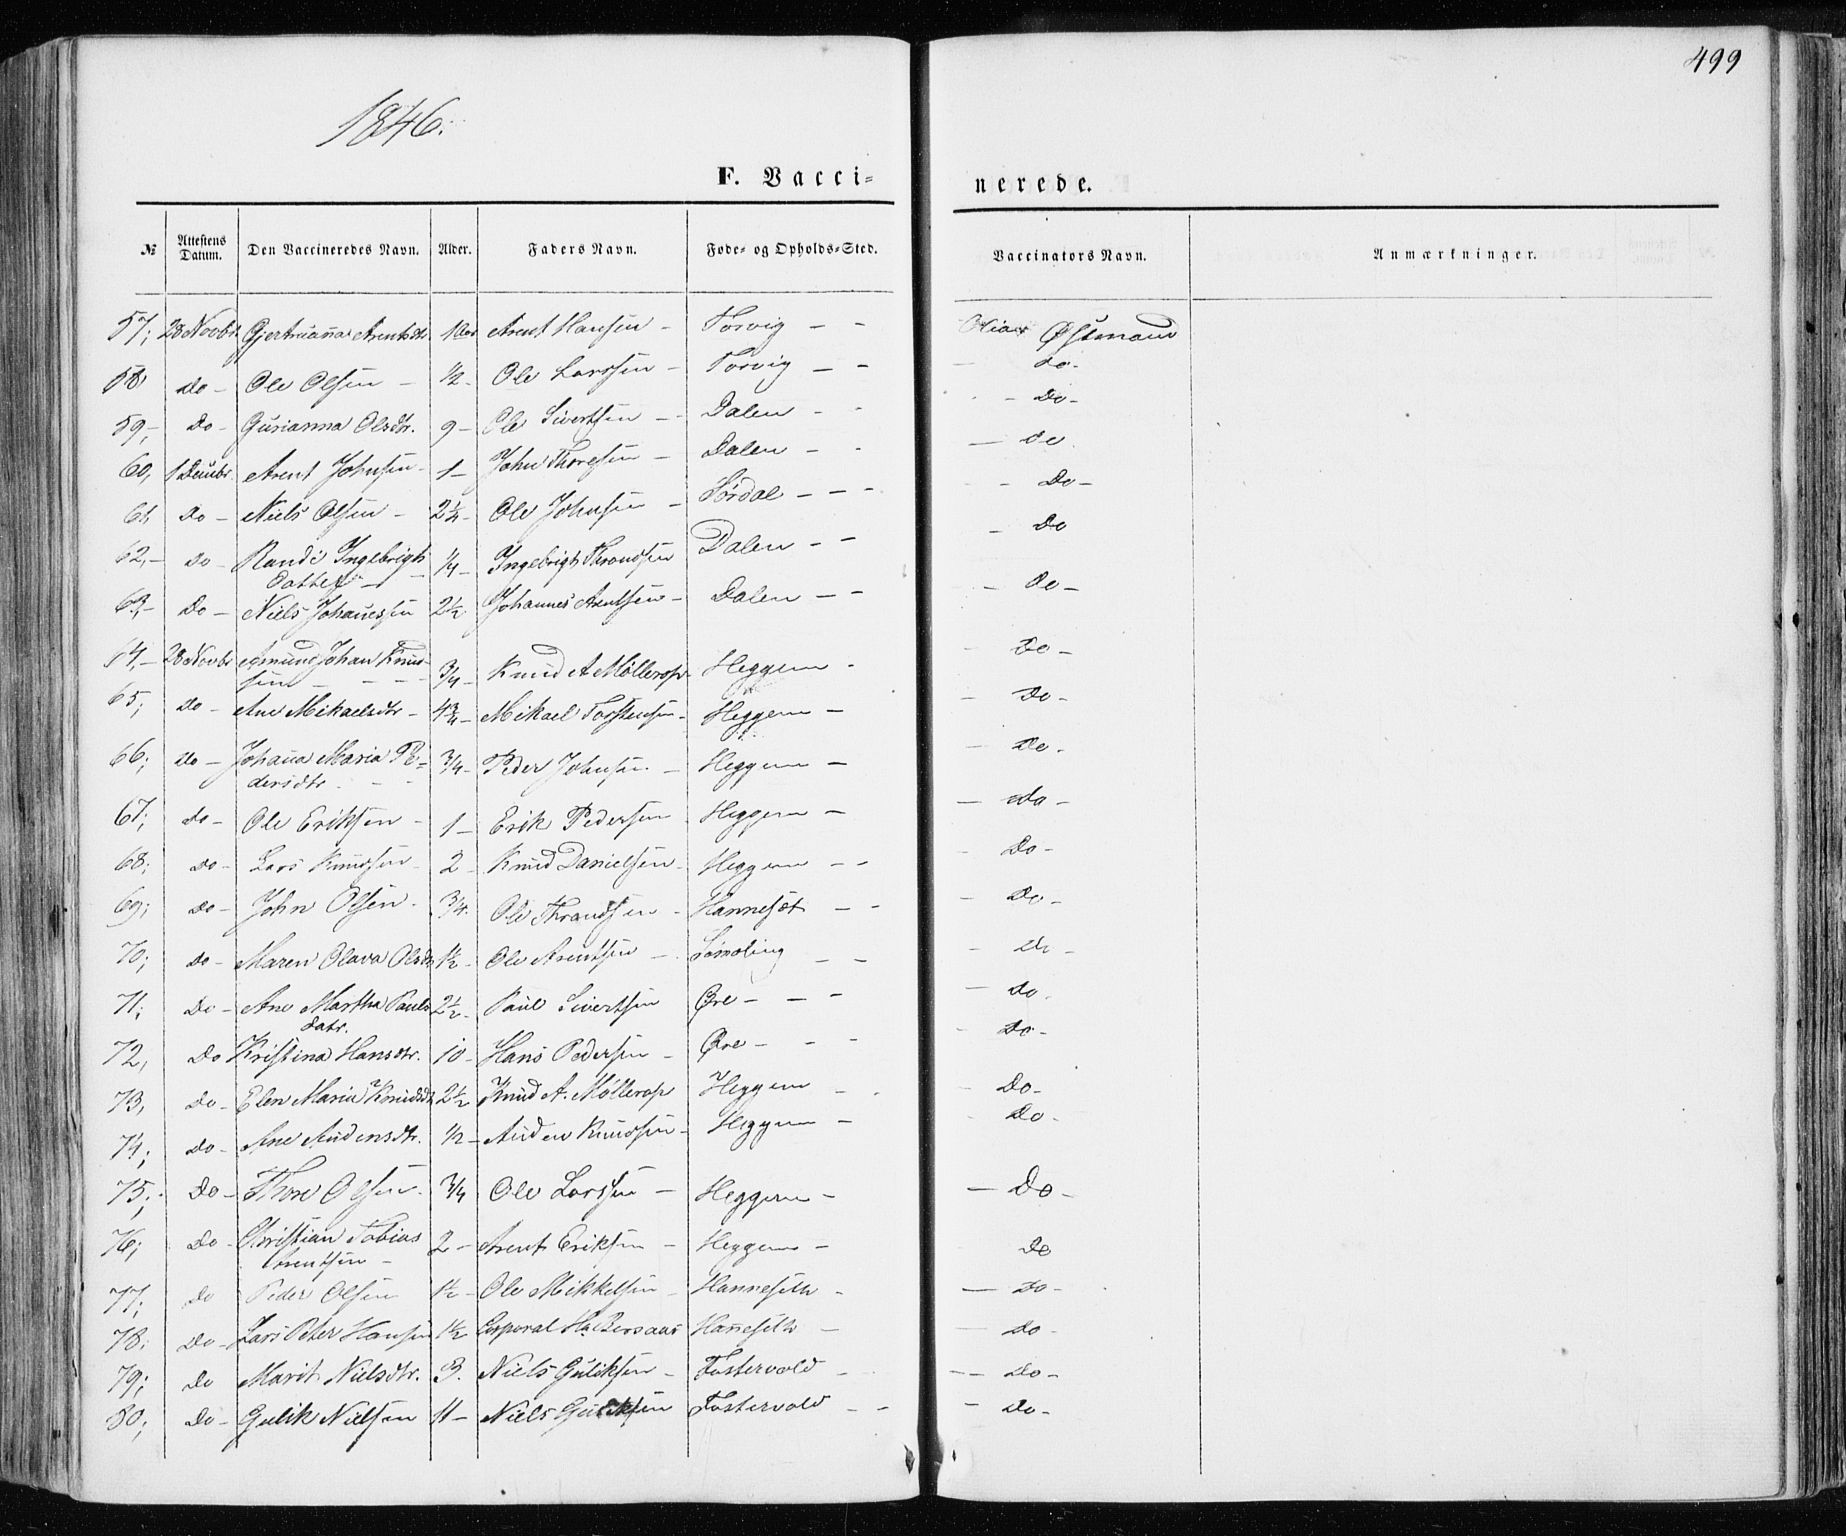 499
1846.
F. Vacci-
nerede.
№ Attestens Datum. Den Vaccineredes Navn. Alder. Faders Navn. Føde- og Opholds-Sted. Vaccinators Navn. Anmærkninger.
57; 28 Novbr Arent Hansen - Torvig - - Østmand
58 do - Ole Olsen - 1/2 - Ole Larssen - Torvig - - - do -
59,- do - Gurianna Olsdtr. 9 - Ole Sivertsen - Dalen - - - do -
60, 1 Decmbr. Arent Johnsen - 1 - John Thoresen - Dalen - - - do
61, do - Niels Olsen - 2 1/4 - Ole Johnsen - Sørdal - - - - do -
62,- do - Randi Ingebrigts 1/4 - Ingebrigt Throndsen Dalen - - - do
Datter - -
63,- do - Niels Johanessen 2 1/2 Johannes Arentsen - Dalen - - - do -
64,- 28 Novbr Amund Johan Knud- 3/4 - Knud A Møllerop Heggem - - do -
sen - - - -
65; do - Ane Mikaelsdtr - 4 3/4 - Mikael Torstensen - Heggem - - do -
66; do - Johana Maria Pe- 3/4 - Peder Johnsen - Heggem - - do -
dersdtr. - -
67; do - Ole Eriksen - 1 - Erik Pedersen Heggem - - do -
68; do - Lars Knudsen - 2 - Knud Danielsen - Heggem - - - do -
69; do - John Olsen - 3/4. Ole Thrandsen - Hannesæt - - - do -
70; do - Maren Olava Olsdtr 1 1/2 - Ole Arentsen - - - - do -
71; do - Ane Martha Pauls 2 1/2 - Paul Sivertsen Øre - - - - do -
datr.
72, do Kristina Hansdtr. 10 - Hans Pedersen - Øre - - - - do -
73, do - Elen Maria Knudsdtr 2 1/2 Knud A. Møllerop Heggem - - do -
74; do - Ane Audensdtr. 1/2 - Auden Knudsen - Heggem - - do -
75; do - Thore Olsen - 3/4 Ole Larssen - Heggem - - do -
76; do - Christian Tobias 2 - Arent Eriksen - Heggem - do
Arentsen -
77; do Peder Olsen 1 1/2 - Ole Mikkelsen - Hanneseth - - do -
78; do - Lars Peter Hansen 1 1/2 Corporal Hanneseth - - do -
79; do Marit Nielsdtr. 3. Niels Guliksen - Fostervold - - - - do -
80; do - Gulik Nielsen 11 - Niels Guliksen Fostervold - - - do -